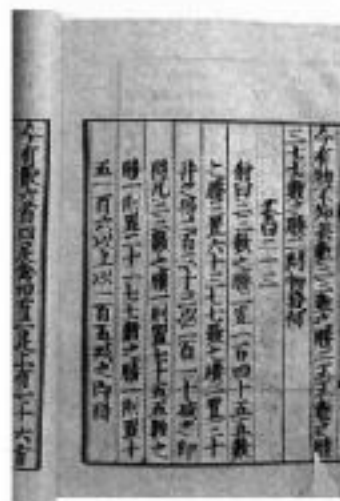 今有物不知其數三三數之賸二五五數之賸
三七七數之賸二問物幾何
荅曰二十三
術曰三三數之賸二置一百四十五五數
之賸三置六十三七七數之賸二置三十
并之得二百三十三以二百一十減之即
得凡三三數之賸一則置七十五五數之
賸一則置二十一七七數之賸一則置十
五一百六以上以一百五減之即得
今有獸六首四足禽四首二足上有七十六首